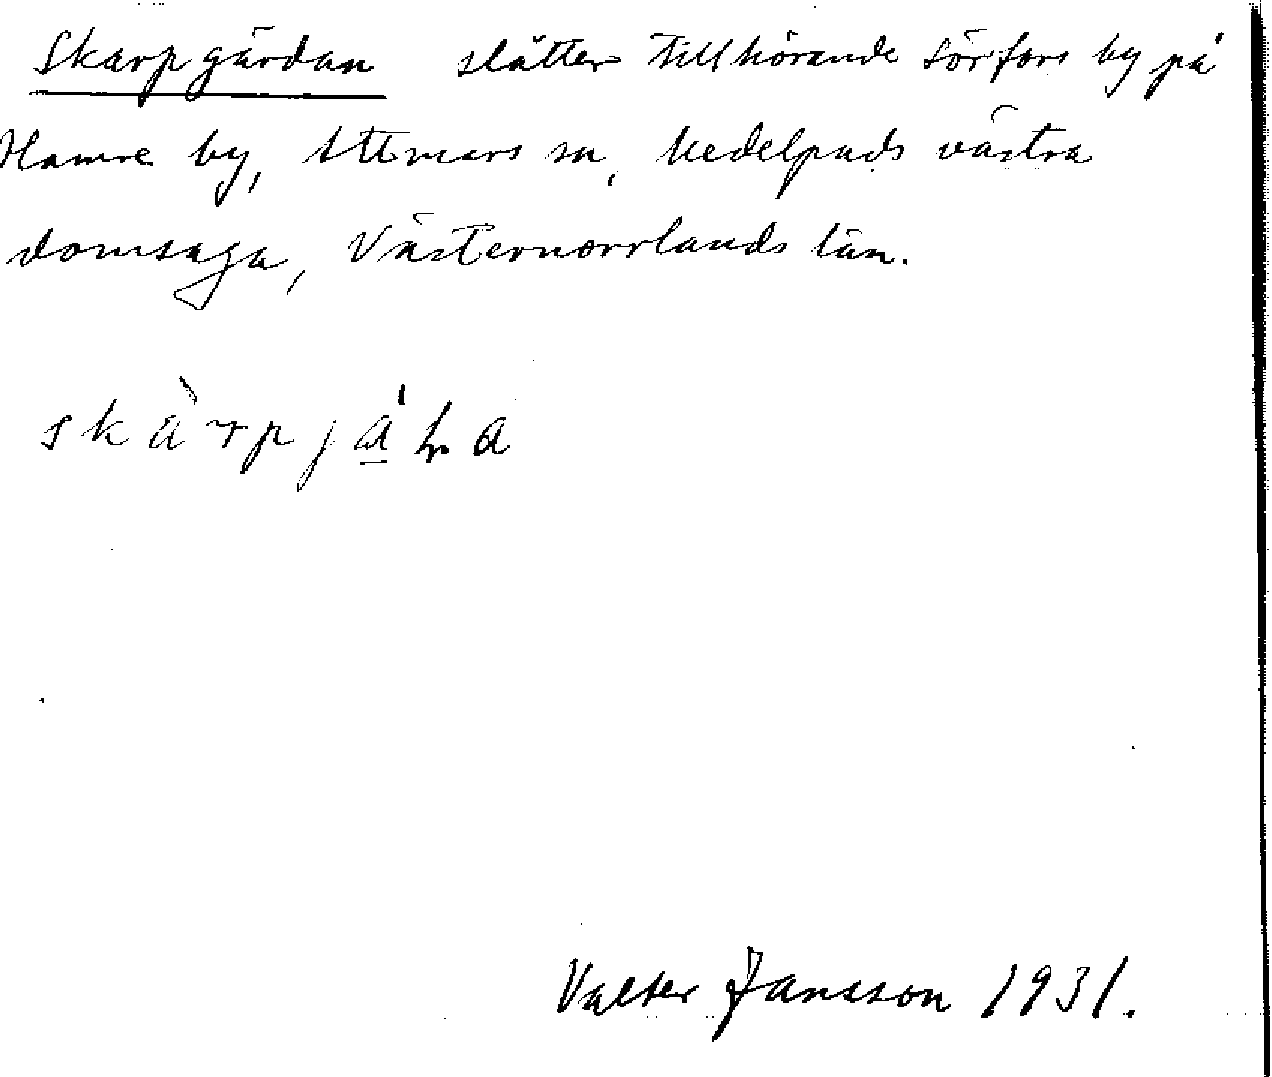 Skarpgärdan slåtter tillhörande Sörfors by på
Hamre by, Attmars sn, Medelpads västra
domsaga, Västernorrlands län.
skàrpjáɫa
Valter Jansson 1931.